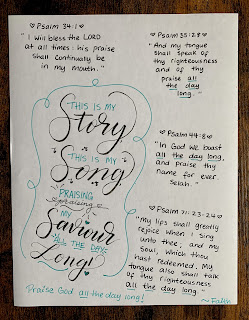 ♡ Psalm 34:1
"I will bless the LORD
at all times: his praise
shall continually be
in my mouth."
♡ Psalm 35:28
"And my tongue
shall speak of
thy righteousness
and of thy
praise all
the day
long."
THIS IS MY
Story
THIS IS MY
Song
PRAISING
praising
MY
Saviour
ALL THE DAY
Long!
Praise God all the day long!
♡ Psalm 44:8
"In God we boast
all the day long,
and praise thy
name for ever.
Selah."
♡ Psalm 71:23-24
"My lips shall greatly
rejoice when I sing
unto thee; and my
soul, which thou
hast redeemed. My
tongue also shall talk
of thy righteousness
all the day long..."
~Faith